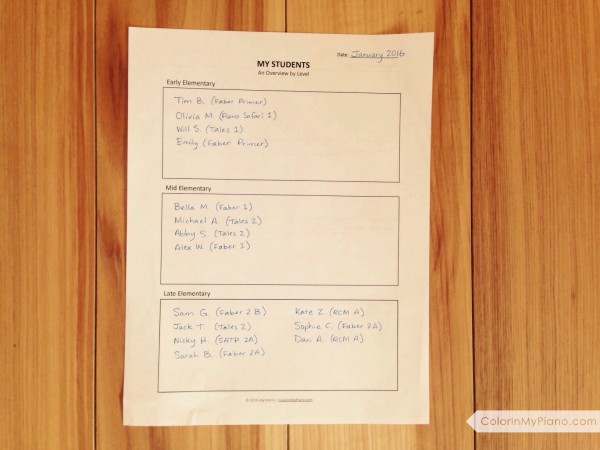 Date: January 2016
MY STUDENTS
An Overview by Level
Early Elementary
Tim B. (Faber Primer)
Olivia M. (Piano Safari 1)
Will S. (Tales 1)
Emily (Faber Primer)
Mid Elementary
Bella M. (Faber 1)
Michael A. (Tales 2)
Abby S. (Tales 2)
Alex W. (Faber 1)
Late Elementary
Sam G. (Faber 2B)
Jack T. (Tales 2)
Nicky H. (SATP 2A)
Sarah B. (Faber 2A)
Kate Z. (RCM A)
Sophie C. (Faber 2A)
Dan A. (RCM A)
ColorInMyPiano.com
ColorInMyPiano.com